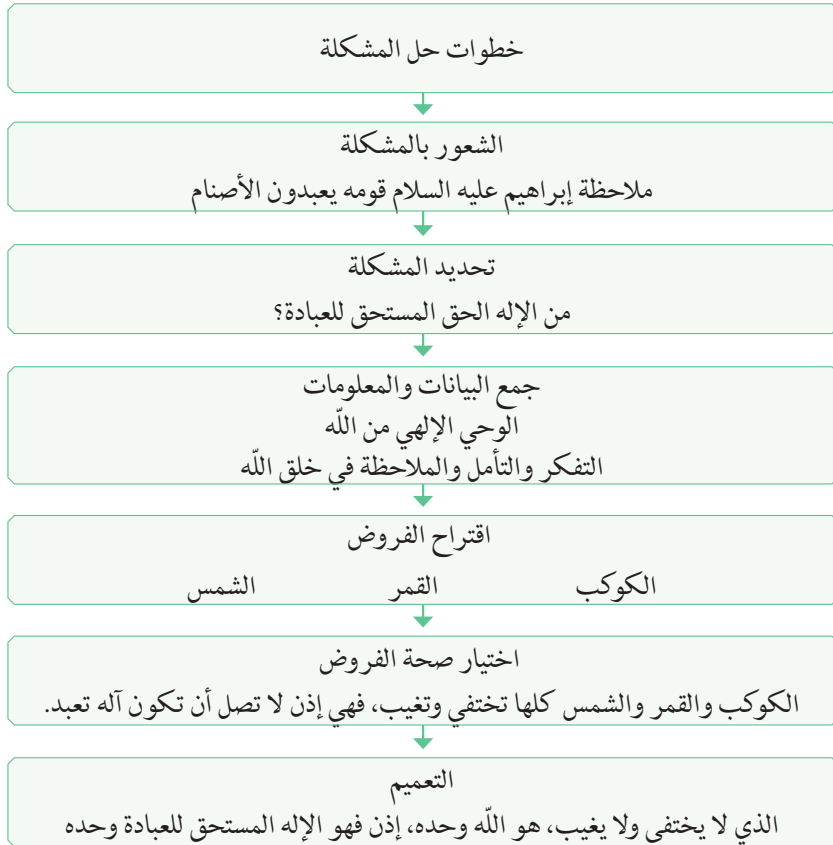 خطوات حل المشكلة
الشعور بالمشكلة
ملاحظة إبراهيم عليه السلام قومه يعبدون الأصنام
تحديد المشكلة
من الإله الحق المستحق للعبادة؟
جمع البيانات والمعلومات
الوحي الإلهي من اللّه
التفكر والتأمل والملاحظة في خلق اللّه
اقتراح الفروض
الكوكب القمر الشمس
اختيار صحة الفروض
الكوكب والقمر والشمس كلها تختفي وتغيب، فهي إذن لا تصل أن تكون آله تعبد.
التعميم
الذي لا يختفي ولا يغيب، هو اللّه وحده، إذن فهو الإله المستحق للعبادة وحده